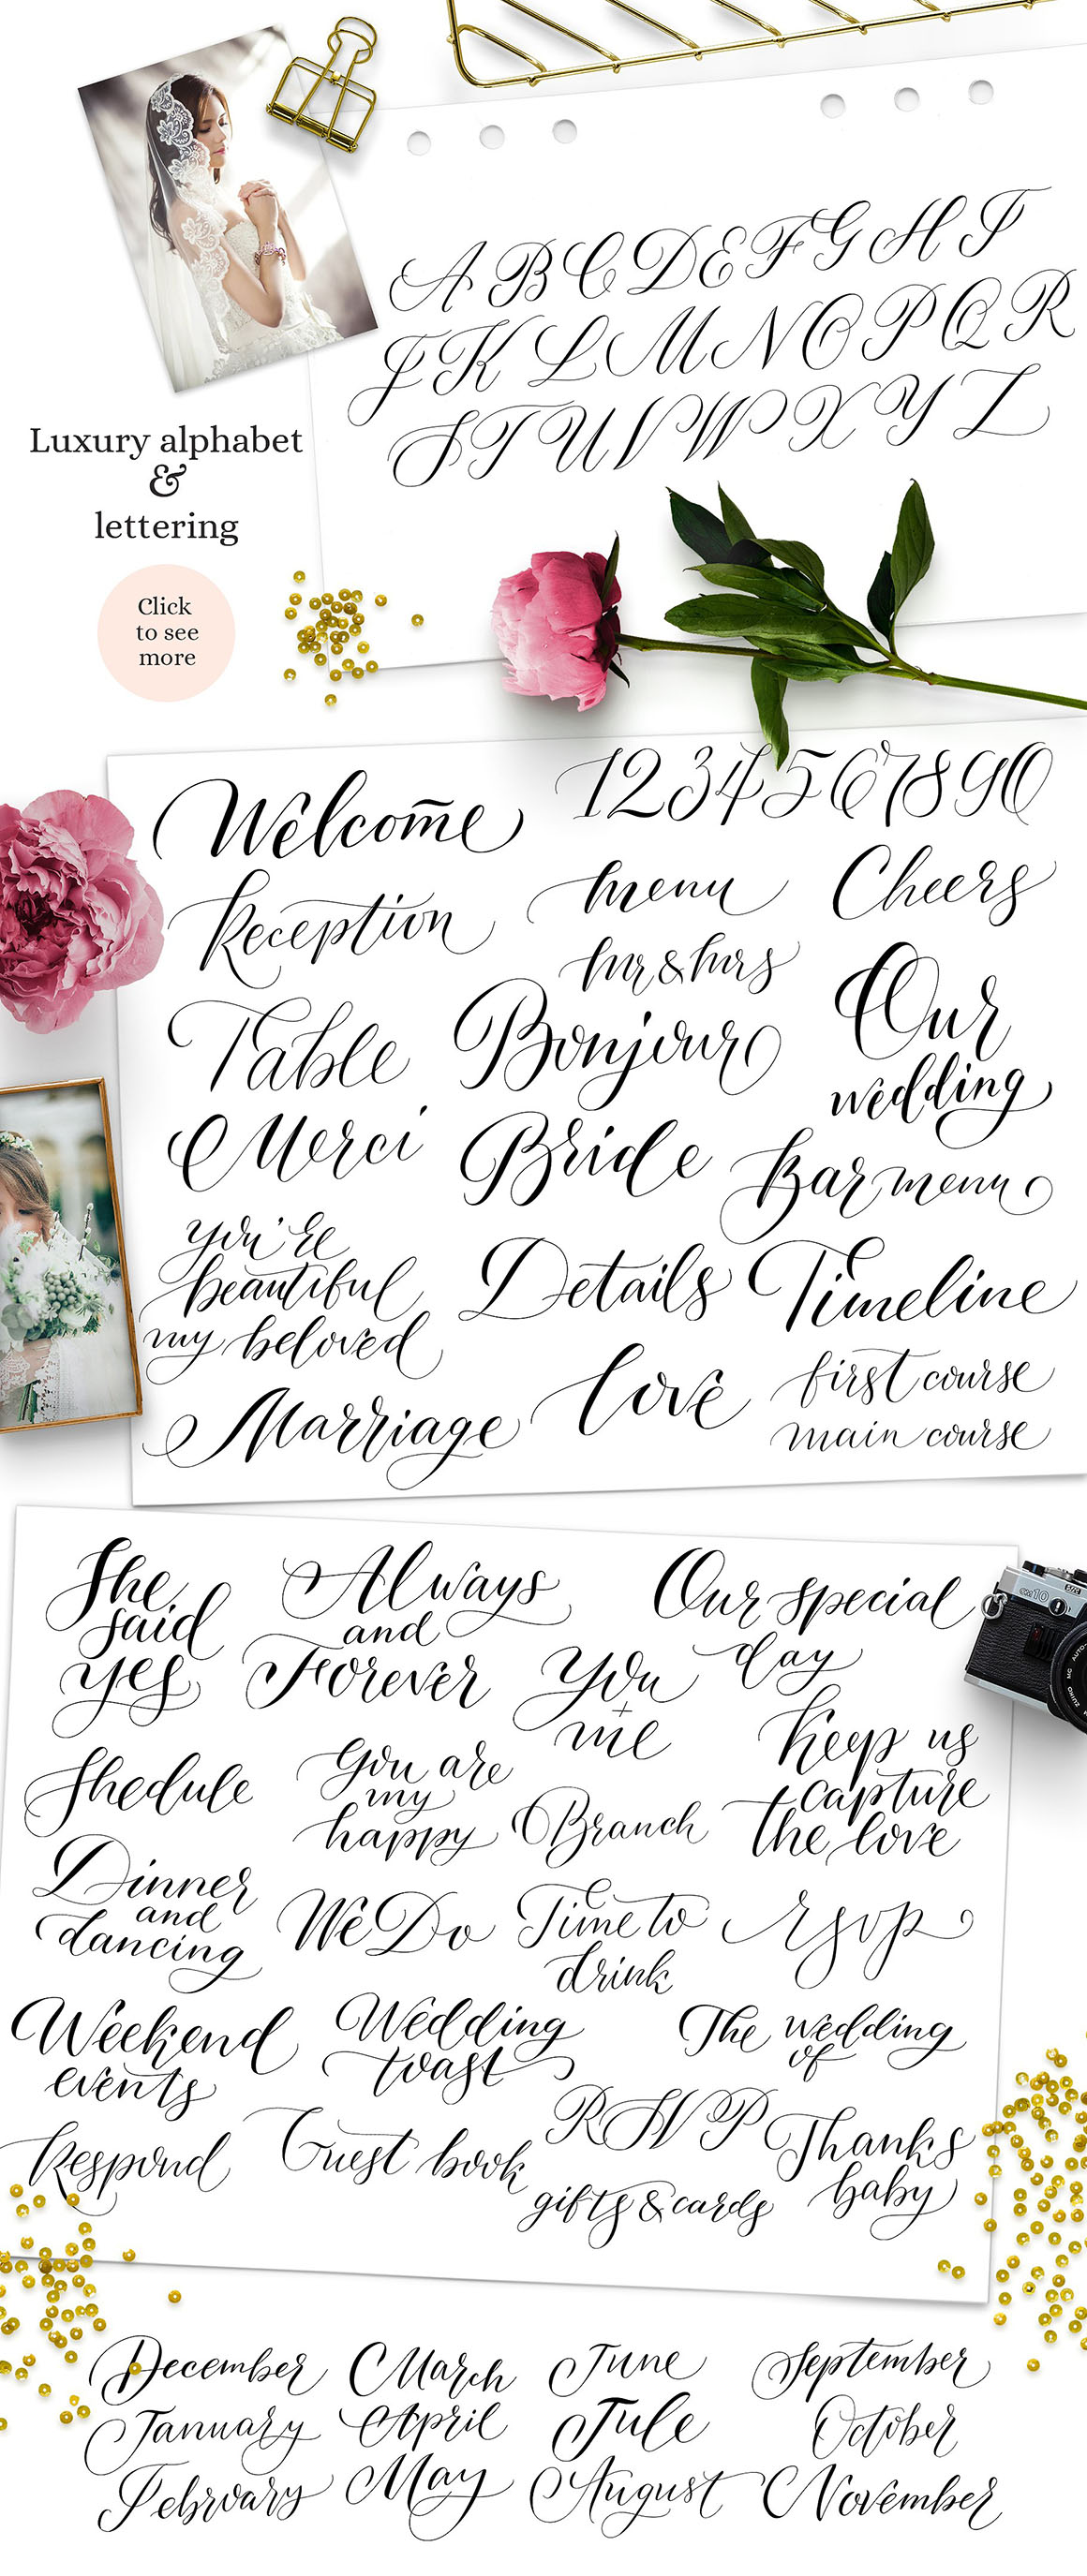 A B C D E F G H I
J K L M N O P Q R
S T U V W X Y Z
Luxury alphabet
&
lettering
Click
to see
more
1234567890
Welcome
menu
Cheers
Reception
mr & mrs
Our
wedding
Table
Bonjour
Merci
Bride
Bar menu
you're
beautiful
my beloved
Details
Timeline
Love
first course
main course
Marriage
She
said
yes
Always
and
Forever
Our special
day
You
+
me
Keep us
capture
the love
Shedule
You are
my
happy
Branch
Dinner
and
dancing
We Do
Time to
drink
rsvp
Weekend
events
Wedding
toast
The wedding
of
Respond
Guest book
RSVP
gifts & cards
Thanks
baby
December
March
June
September
January
April
Jule
October
February
May
August
November